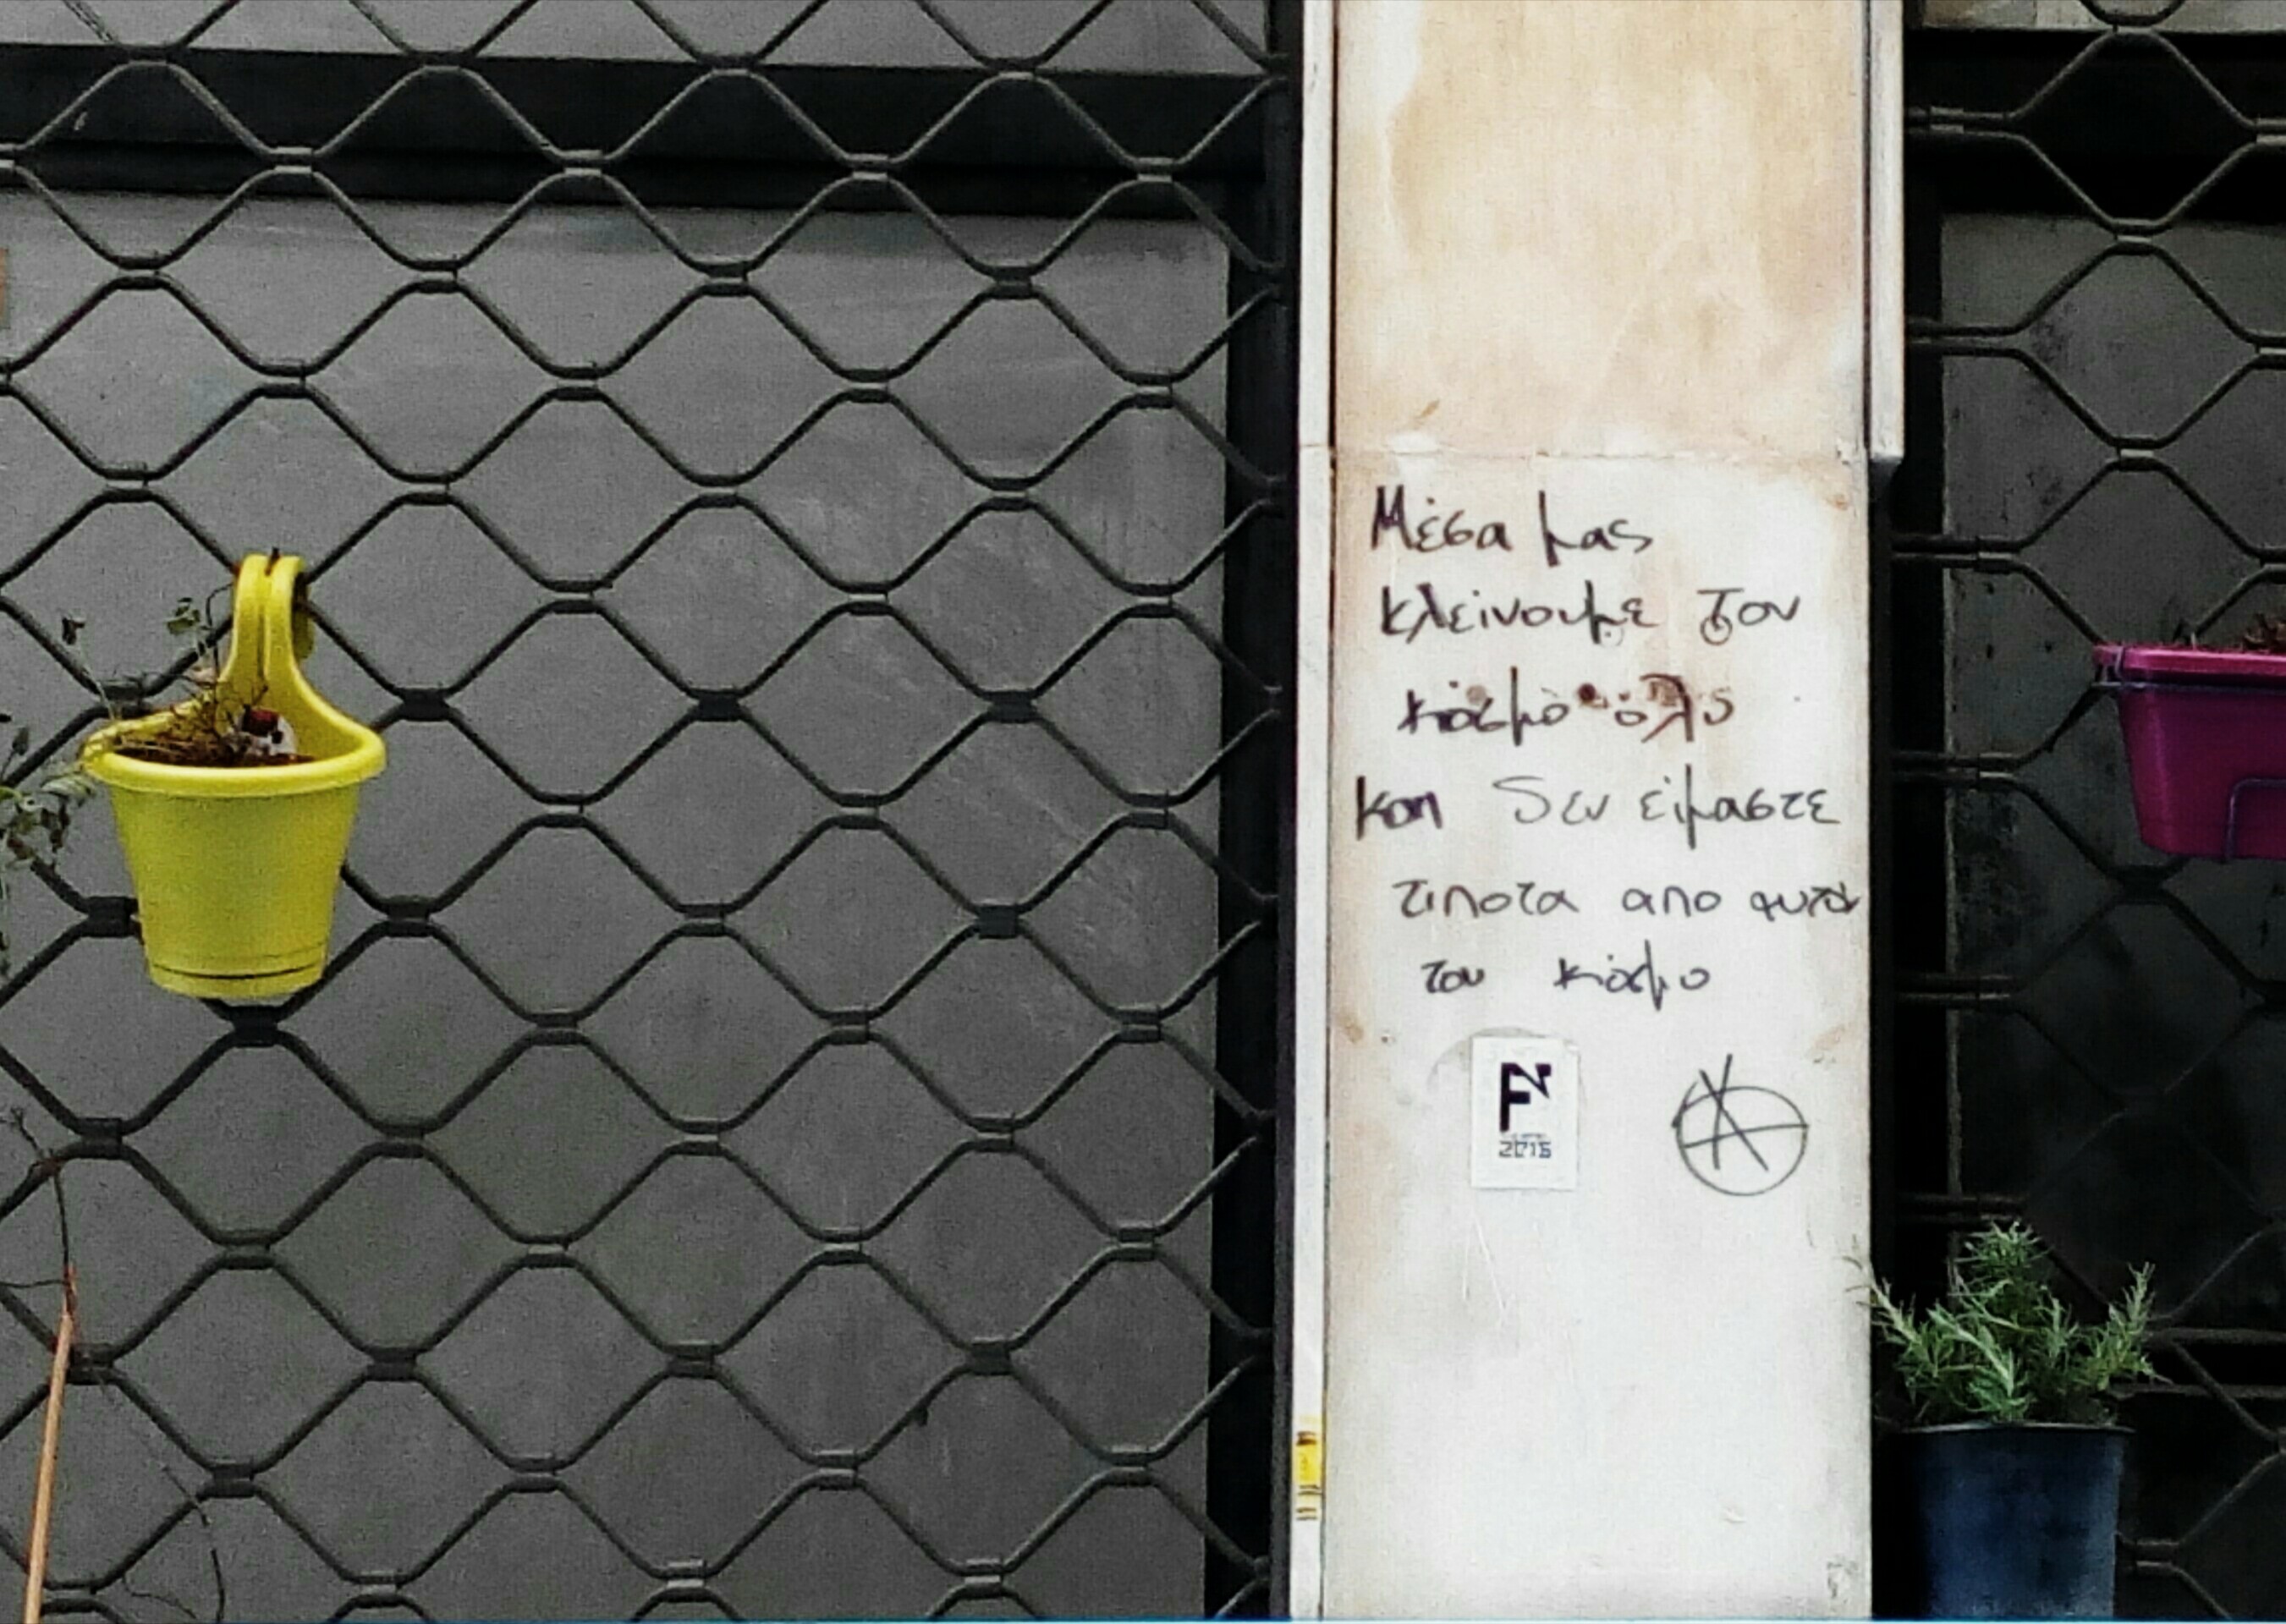 Μέσα μας
κλείνουμε τον
κόσμο όλο
και δεν είμαστε
τιποτα απο αυτόν
τον κόσμο
FN
2015